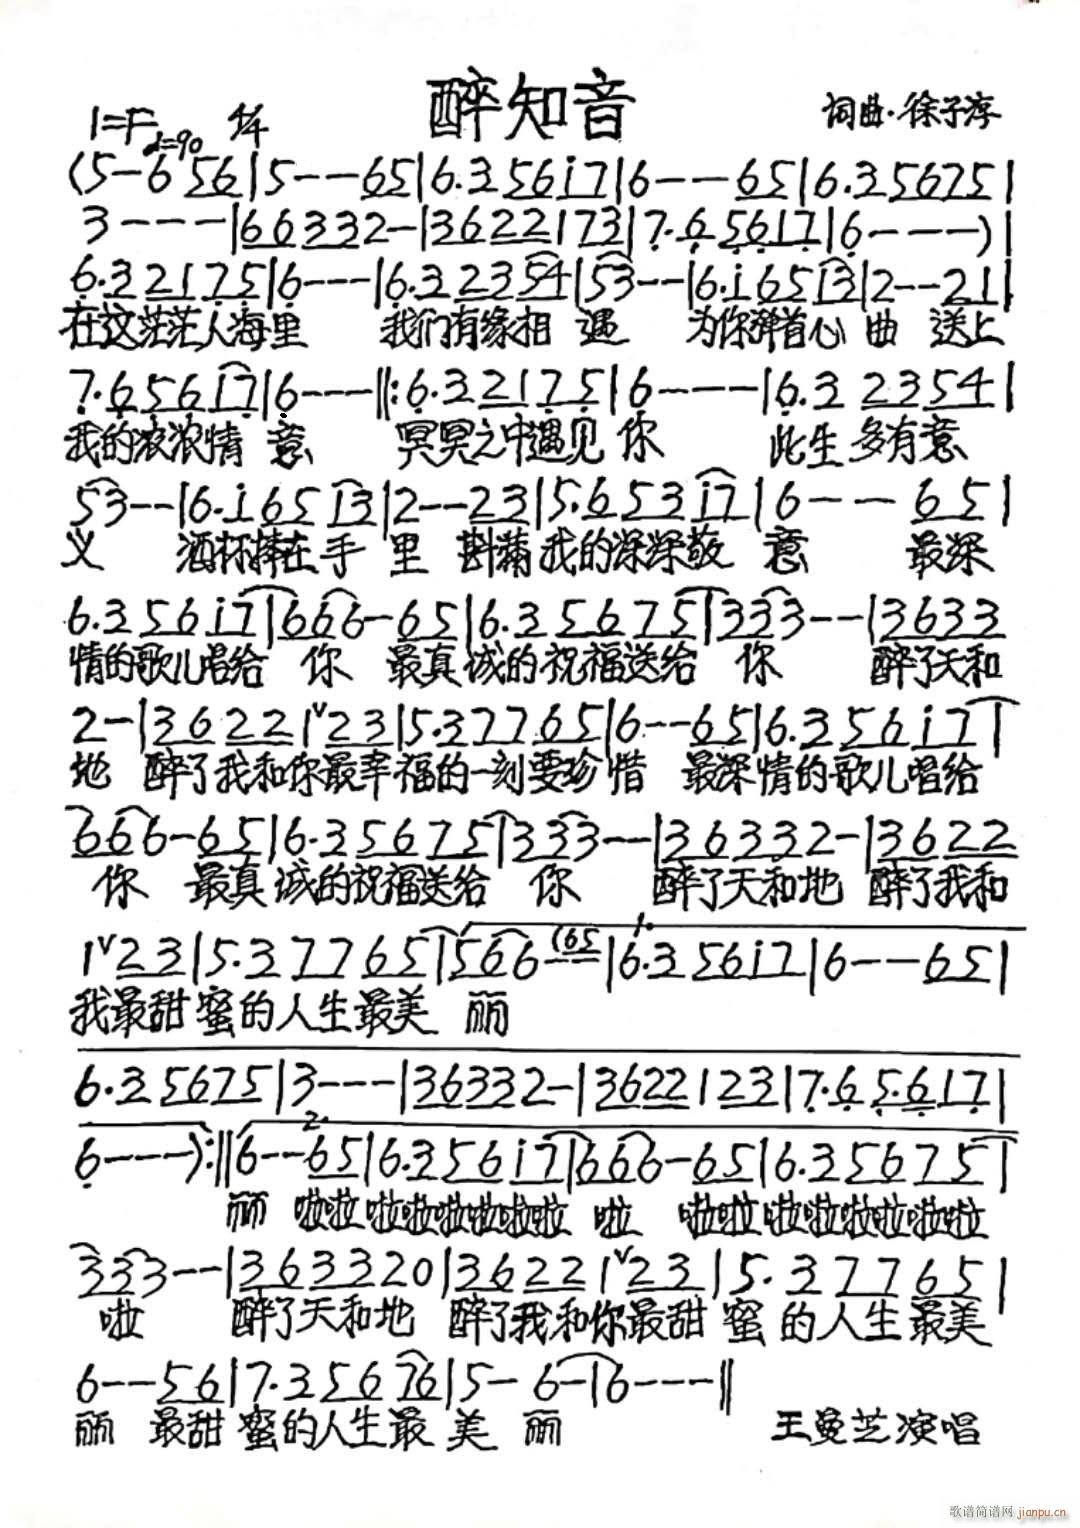 醉知音
1=F ♩=90 4/4 词曲·徐子淳
(5-6 56|5---65|6.3 56i7|6---65|6.3 5675|
3----|66332-|3622173|7.6 5617|6----)|
6.3 2175|6---|6.3 2354|53--|6.i 6513|2--21|
在这茫茫人海里 我们有缘相 遇 为你弹首心 曲 送上
7.6 56i7|6---‖:6.3 2175|6----|6.3 2354|
我的浓浓情 意 冥冥之中遇见 你 此生 多有意
53--|6.i 65i3|2--23|5.6 53i7|6-- 65|
义 酒杯捧在 手 里 斟满 我的深深敬 意 最深
6.3 56i7|666-65|6.3 5675|333--|3633
情的歌儿唱给 你 最真诚的祝福送给 你 醉了天和
2-|36221ᵛ23|5.37765|6--65|6.3 56i7|
地 醉了我和你最幸福的一刻要珍惜 最深情的歌儿唱给
666-65|6.3 5675|333--|36332-|3622
你 最真诚的祝福送给 你 醉了天和地 醉了我和
1ᵛ23|5.37765|566--(65|1.6.3 56i7|6--65|
我最甜蜜的人生最美 丽
6.3 5675|3---|36332-|3622123|7.6 5.617|
6----):‖2.6--65|6.3 56i7|666-65|6.3 5675|
丽 啦啦啦啦啦啦啦啦 啦 啦啦啦啦啦啦啦啦
333--|363320|36221ᵛ23|5.37765|
啦 醉了天和地 醉了我和你最甜 蜜 的人生最美
6--56|7.3 5676|5- 6-|6---‖
丽 最甜 蜜的人生最 美 丽 王曼芝演唱
歌谱简谱网 jianpu.cn